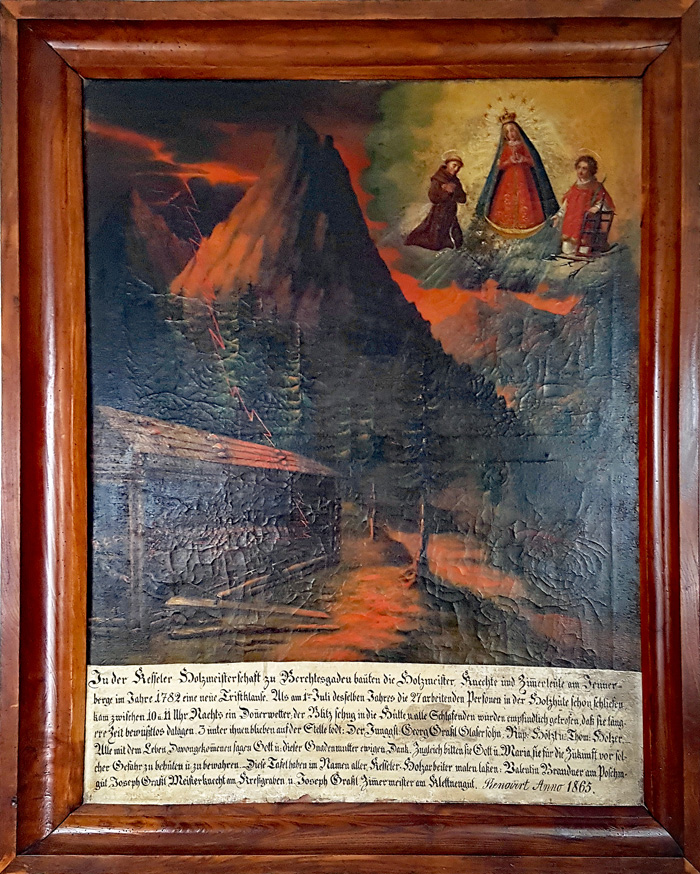 In der Kesseler Holzmeisterschaft zu Berchtesgaden bauten die Holzmeister, Knechte und Zimerleute am Jenner-
berge im Jahre 1782 eine neue Triftklause. Als am 1ten Juli desselben Jahres die 27 arbeitenden Personen in der Holzhüte schon schliefen
kam zwischen 10 u. 11 Uhr Nachts ein Donerwetter, der Blitz schlug in die Hütte u. alle Schlafenden wurden empfindlich getrofen, daß sie läng-
ere Zeit bewußtlos dalagen. 3 unter ihnen blieben auf der Stelle todt: Der Junggsl. Georg Graßl Stalersohn, Rup. Hölzl u. Thom. Holzer.
Alle mit dem Leben Davongekomenen sagen Gott u. dieser Gnadenmutter ewigen Dank. Zugleich bitten sie Gott u. Maria, sie für die Zukunft vor sol-
cher Gefahr zu behüten u. zu bewahren. Diese Tafel haben im Namen aller Kesseler-Holzarbeiter malen laßen: Valentin Brandner am Poschn-
gut, Joseph Graßl Meisterknecht am Kreßgraben, u. Joseph Graßl Zimermeister am Klettnengut. Renovirt Anno 1865.